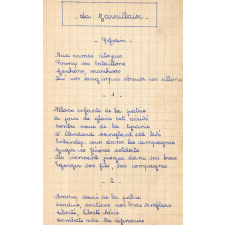 - La Marseillaise -
- Refrain -
Aux armes citoyens
Formez vos bataillons
Marchons, marchons
Qu'un sang impur abreuve nos sillons
- 1 -
Allons enfants de la patrie
Le jour de gloire est arrivé
Contre nous de la tyranie
L'étendard sanglant est levé
Entendez-vous dans les campagnes
Mugir ces féroces soldats
Ils viennent jusque dans vos bras
Egorger vos fils, vos compagnes
- 2 -
Amour sacré de la patrie
Conduis, soutiens nos bras vengeurs
Liberté, liberté chérie
Combats avec tes défenseurs